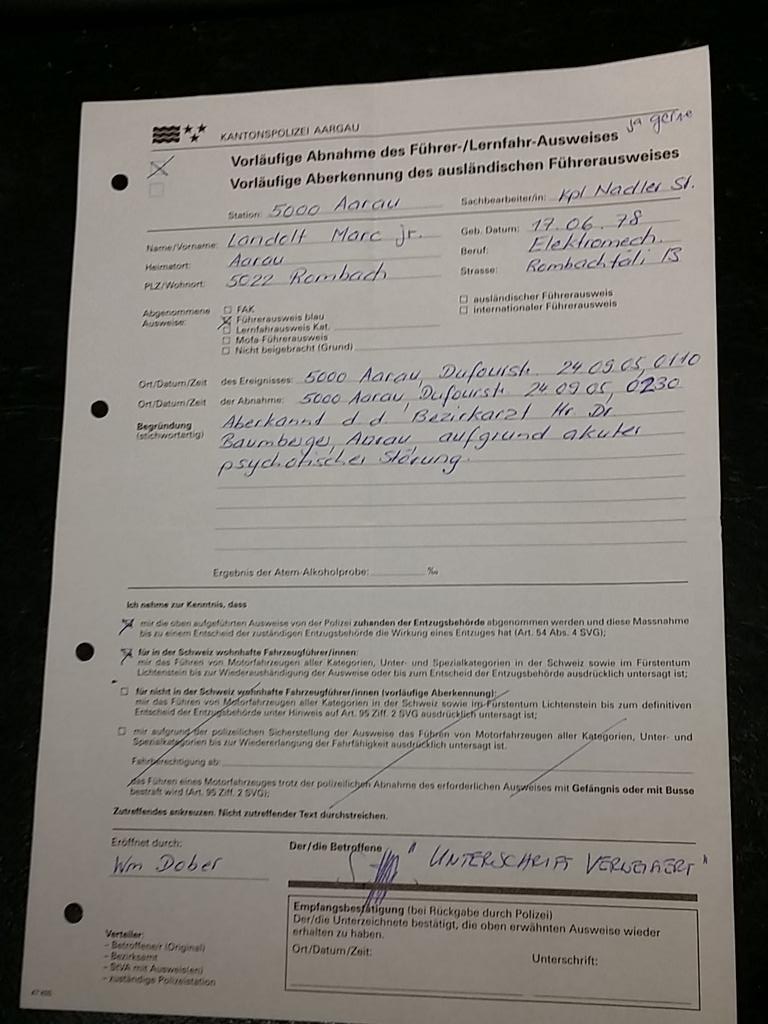 KANTONSPOLIZEI AARGAU
ja gerne
Vorläufige Abnahme des Führer-/Lernfahr-Ausweises
Vorläufige Aberkennung des ausländischen Führerausweises
Station: 5000 Aarau Sachbearbeiter/in: Kpl Nadler St.
Name/Vorname: Landolt Marc jr. Geb. Datum: 17.06.78
Heimatort: Aarau Beruf: Elektromech.
PLZ/Wohnort: 5022 Rombach Strasse: Rombachtäli 13
Abgenommene Ausweise:
FAK
Führerausweis blau
Lernfahrausweis Kat.
Mofa-Führerausweis
Nicht beigebracht (Grund)
ausländischer Führerausweis
internationaler Führerausweis
Ort/Datum/Zeit des Ereignisses: 5000 Aarau, Dufourstr. 24.09.05, 0110
Ort/Datum/Zeit der Abnahme: 5000 Aarau, Dufourstr. 24.09.05, 0230
Begründung Aberkannt d. d. Bezirkarzt Hr. Dr.
(stichwortartig) Baumberger, Aarau aufgrund akuter
psychotischer Störung.
Ergebnis der Atem-Alkoholprobe: ‰
Ich nehme zur Kenntnis, dass
mir die oben aufgeführten Ausweise von der Polizei zuhanden der Entzugsbehörde abgenommen werden und diese Massnahme
bis zu einem Entscheid der zuständigen Entzugsbehörde die Wirkung eines Entzuges hat (Art. 54 Abs. 4 SVG);
für in der Schweiz wohnhafte Fahrzeugführer/innen:
mir das Führen von Motorfahrzeugen aller Kategorien, Unter- und Spezialkategorien in der Schweiz sowie im Fürstentum
Lichtenstein bis zur Wiederaushändigung der Ausweise oder bis zum Entscheid der Entzugsbehörde ausdrücklich untersagt ist;
für nicht in der Schweiz wohnhafte Fahrzeugführer/innen (vorläufige Aberkennung):
mir das Führen von Motorfahrzeugen aller Kategorien in der Schweiz sowie im Fürstentum Lichtenstein bis zum definitiven
Entscheid der Entzugsbehörde unter Hinweis auf Art. 95 Ziff. 2 SVG ausdrücklich untersagt ist;
mir aufgrund der polizeilichen Sicherstellung der Ausweise das Führen von Motorfahrzeugen aller Kategorien, Unter- und
Spezialkategorien bis zur Wiedererlangung der Fahrfähigkeit ausdrücklich untersagt ist.
Fahrberechtigung ab:
das Führen eines Motorfahrzeuges trotz der polizeilichen Abnahme des erforderlichen Ausweises mit Gefängnis oder mit Busse
bestraft wird (Art. 95 Ziff. 2 SVG);
Zutreffendes ankreuzen. Nicht zutreffender Text durchstreichen.
Eröffnet durch: Der/die Betroffene
Wm Dober "UNTERSCHRIFT VERWEIGERT"
Empfangsbestätigung (bei Rückgabe durch Polizei)
Der/die Unterzeichnete bestätigt, die oben erwähnten Ausweise wieder
erhalten zu haben.
Ort/Datum/Zeit: Unterschrift:
Verteiler:
- Betroffene/r (Original)
- Bezirksamt
- StVA mit Ausweis(en)
- zuständige Polizeistation